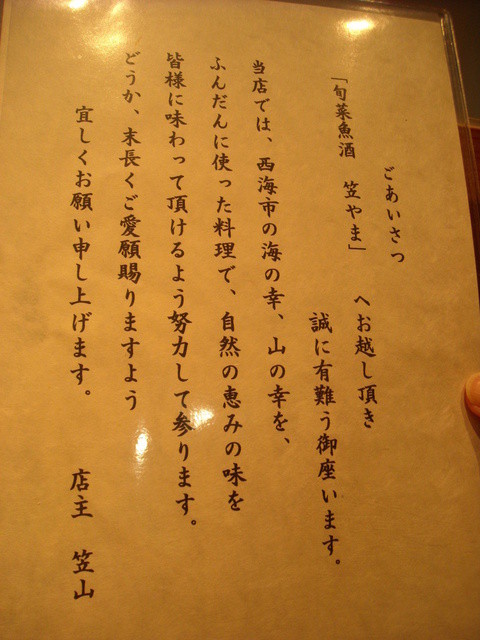 ごあいさつ
「旬菜魚酒　笠やま」　へお越し頂き
誠に有難う御座います。
当店では、西海市の海の幸、山の幸を、
ふんだんに使った料理で、自然の恵みの味を
皆様に味わって頂けるよう努力して参ります。
どうか、末長くご愛願賜りますよう
宜しくお願い申し上げます。
店主　笠山